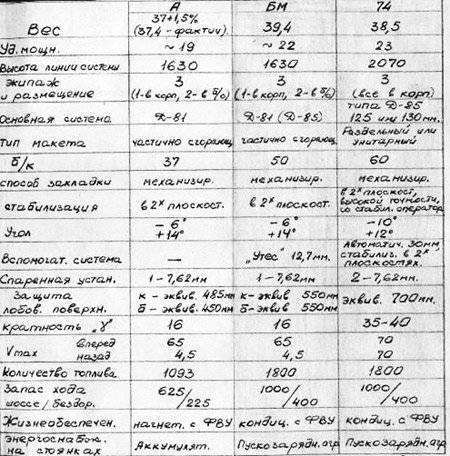 А БМ 74
Вес 37+1,5% (37,4 - фактич.) 39,4 38,5
Уд. мощн. ~ 19 ~ 22 23
Высота линии системы 1630 1630 2070
экипаж и размещение 3 (1-в корп, 2- в б/о) 3 (1-в корп, 2- в б/о) 3 (все в корп)
Основная система Д-81 Д-81 (Д-85) типа Д-85 125 или 130мм.
Тип макета частично сгорающ. частично сгорающ. Раздельный или унитарный
б/к 37 50 60
способ закладки механизир. механизир. механизир.
стабилизация в 2х плоскост. в 2х плоскост. в 2х плоскост, высокой точности, со стабил. оператора
Угол - 6° +14° - 6° +14° -10° +12°
Вспомогат. система — „Утес" 12,7мм. Автоматич. 30мм стабилиз. в 2х плоскостях.
Спаренная устан. 1-7,62мм 1-7,62мм 2-7,62мм.
Защита лобов. поверхн. к - эквив. 485мм б - эквив. 450мм к- эквив 550мм б- эквив 550мм эквив. 700мм.
кратность „γ" 16 16 35-40
Vmax вперед 65 65 70
назад 4,5 4,5 70
Количество топлива 1093 1800 1800
Запас хода шоссе/бездор. 625/225 1000/400 1000/400
Жизнеобеспечен. нагнет. с ФВУ кондиц. с ФВУ кондиц. с ФВУ
энергоснабж. на стоянках Аккумулят. Пускозарядн. агр Пускозарядн. агр.